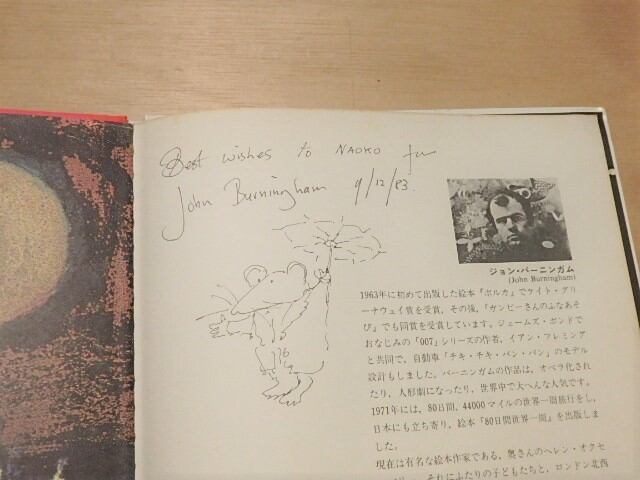 Best wishes to NAOKO
John Burningham 9/12/83.
ジョン・バーニンガム
(John Burningham)
1963年に初めて出版した絵本『ボルカ』でケイト・グリ
ーナウェイ賞を受賞，その後，『ガンピーさんのふなあそ
び』でも同賞を受賞しています。ジェームズ・ボンドで
おなじみの「007」シリーズの作者，イアン・フレミング
と共同で，自動車「チキ・チキ・バン・バン」のモデル
設計もしました。バーニンガムの作品は，オペラ化され
たり，人形劇になったり，世界中で大へんな人気です。
1971年には，80日間，44000マイルの世界一周旅行をし，
日本にも立ち寄り，絵本『80日間世界一周』を出版しま
した。
現在は有名な絵本作家である，奥さんのヘレン・オクセ
それにふたりの子どもたちと，ロンドン北西